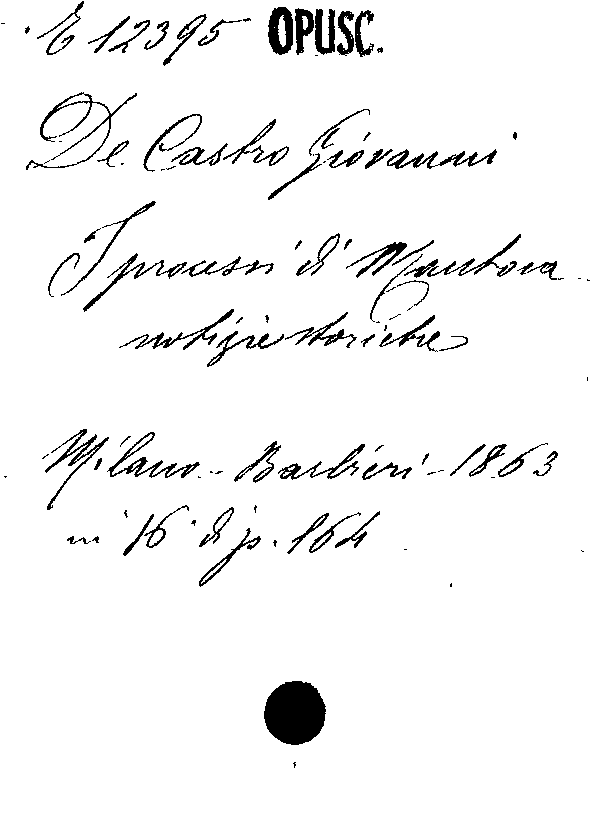 E 12395 OPUSC.
De Castro Giovanni
I processi di Mantova
notizie storiche
Milano - Barbieri - 1863
in 16° di p. 164